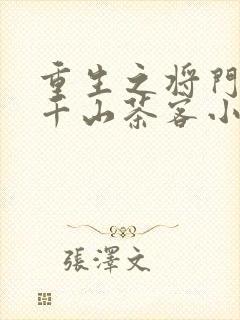 重生之将門
千山茶客小
張澤文